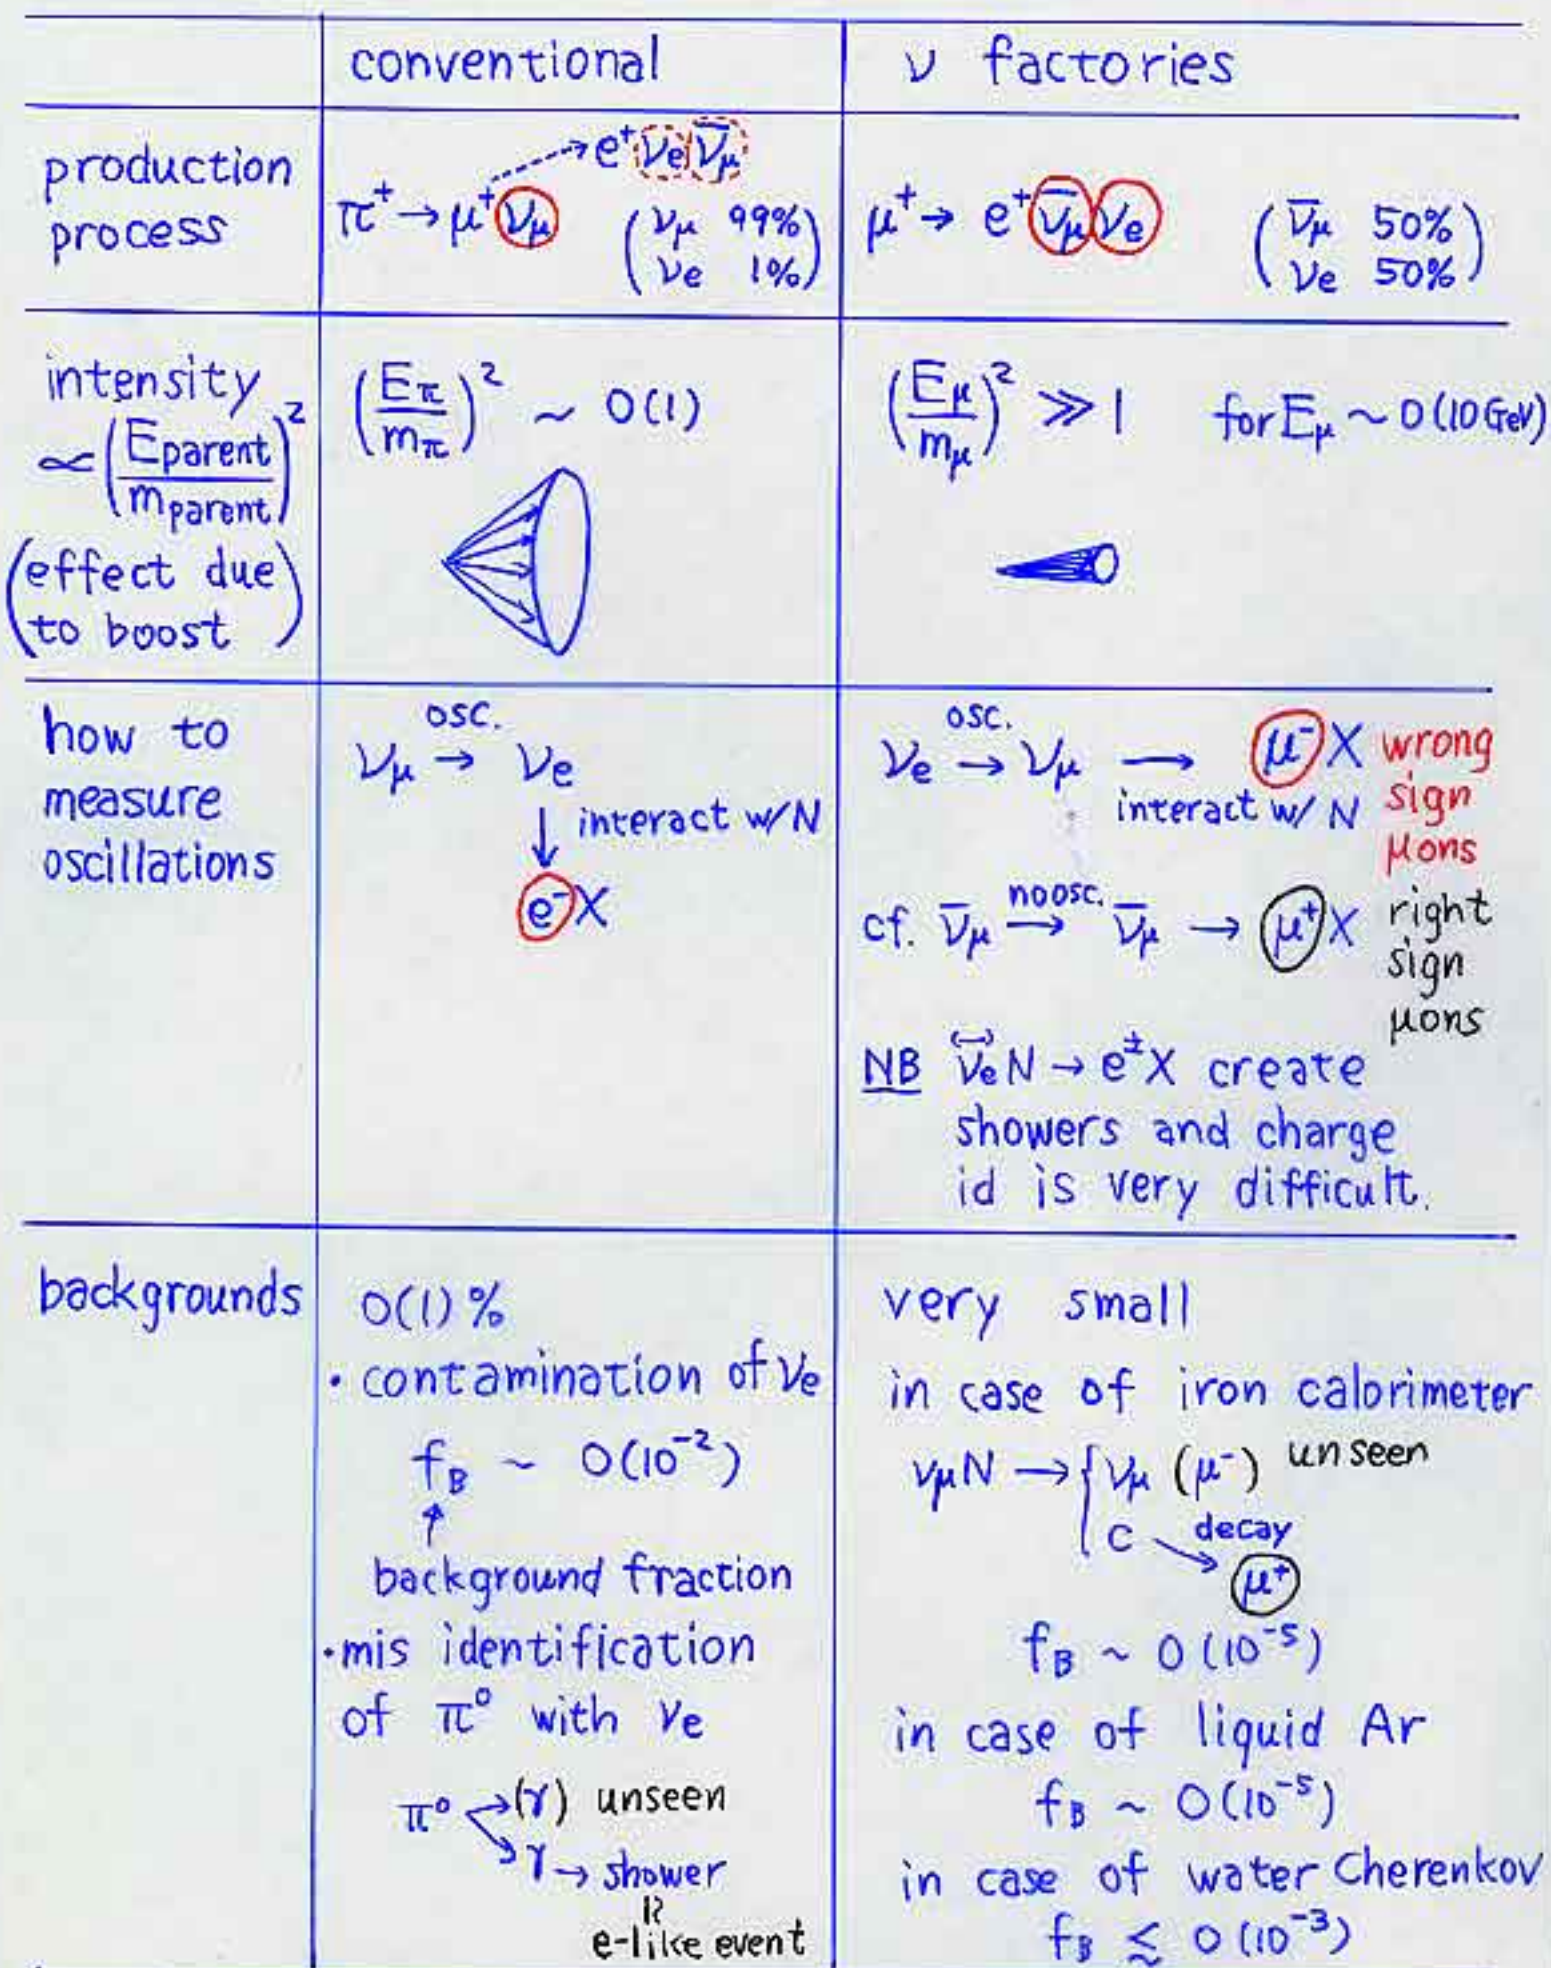 conventional
ν factories
production process
e⁺ νe ν̄μ
π⁺ → μ⁺ νμ
(νμ 99%
νe 1%)
μ⁺ → e⁺ ν̄μ νe
(ν̄μ 50%
νe 50%)
intensity
∝ (Eparent/mparent)²
(effect due
to boost)
(Eπ/mπ)² ~ O(1)
(Eμ/mμ)² ≫ 1 for Eμ ~ O(10 GeV)
how to
measure
oscillations
osc.
νμ → νe
↓ interact w/N
e⁻X
osc.
νe → νμ → μ⁻X wrong
interact w/ N sign
μons
cf. ν̄μ → ν̄μ → μ⁺X right
no osc.
sign
μons
NB (ν̄)e N → e±X create
showers and charge
id is very difficult.
backgrounds
O(1)%
・contamination of νe
fB ~ O(10⁻²)
↑
background fraction
・mis identification
of π⁰ with νe
π⁰ → (γ) unseen
γ → shower
≀≀
e-like event
very small
in case of iron calorimeter
νμN → { νμ (μ⁻) unseen
c decay
μ⁺
fB ~ O(10⁻⁵)
in case of liquid Ar
fB ~ O(10⁻⁵)
in case of water Cherenkov
fB ≲ O(10⁻³)